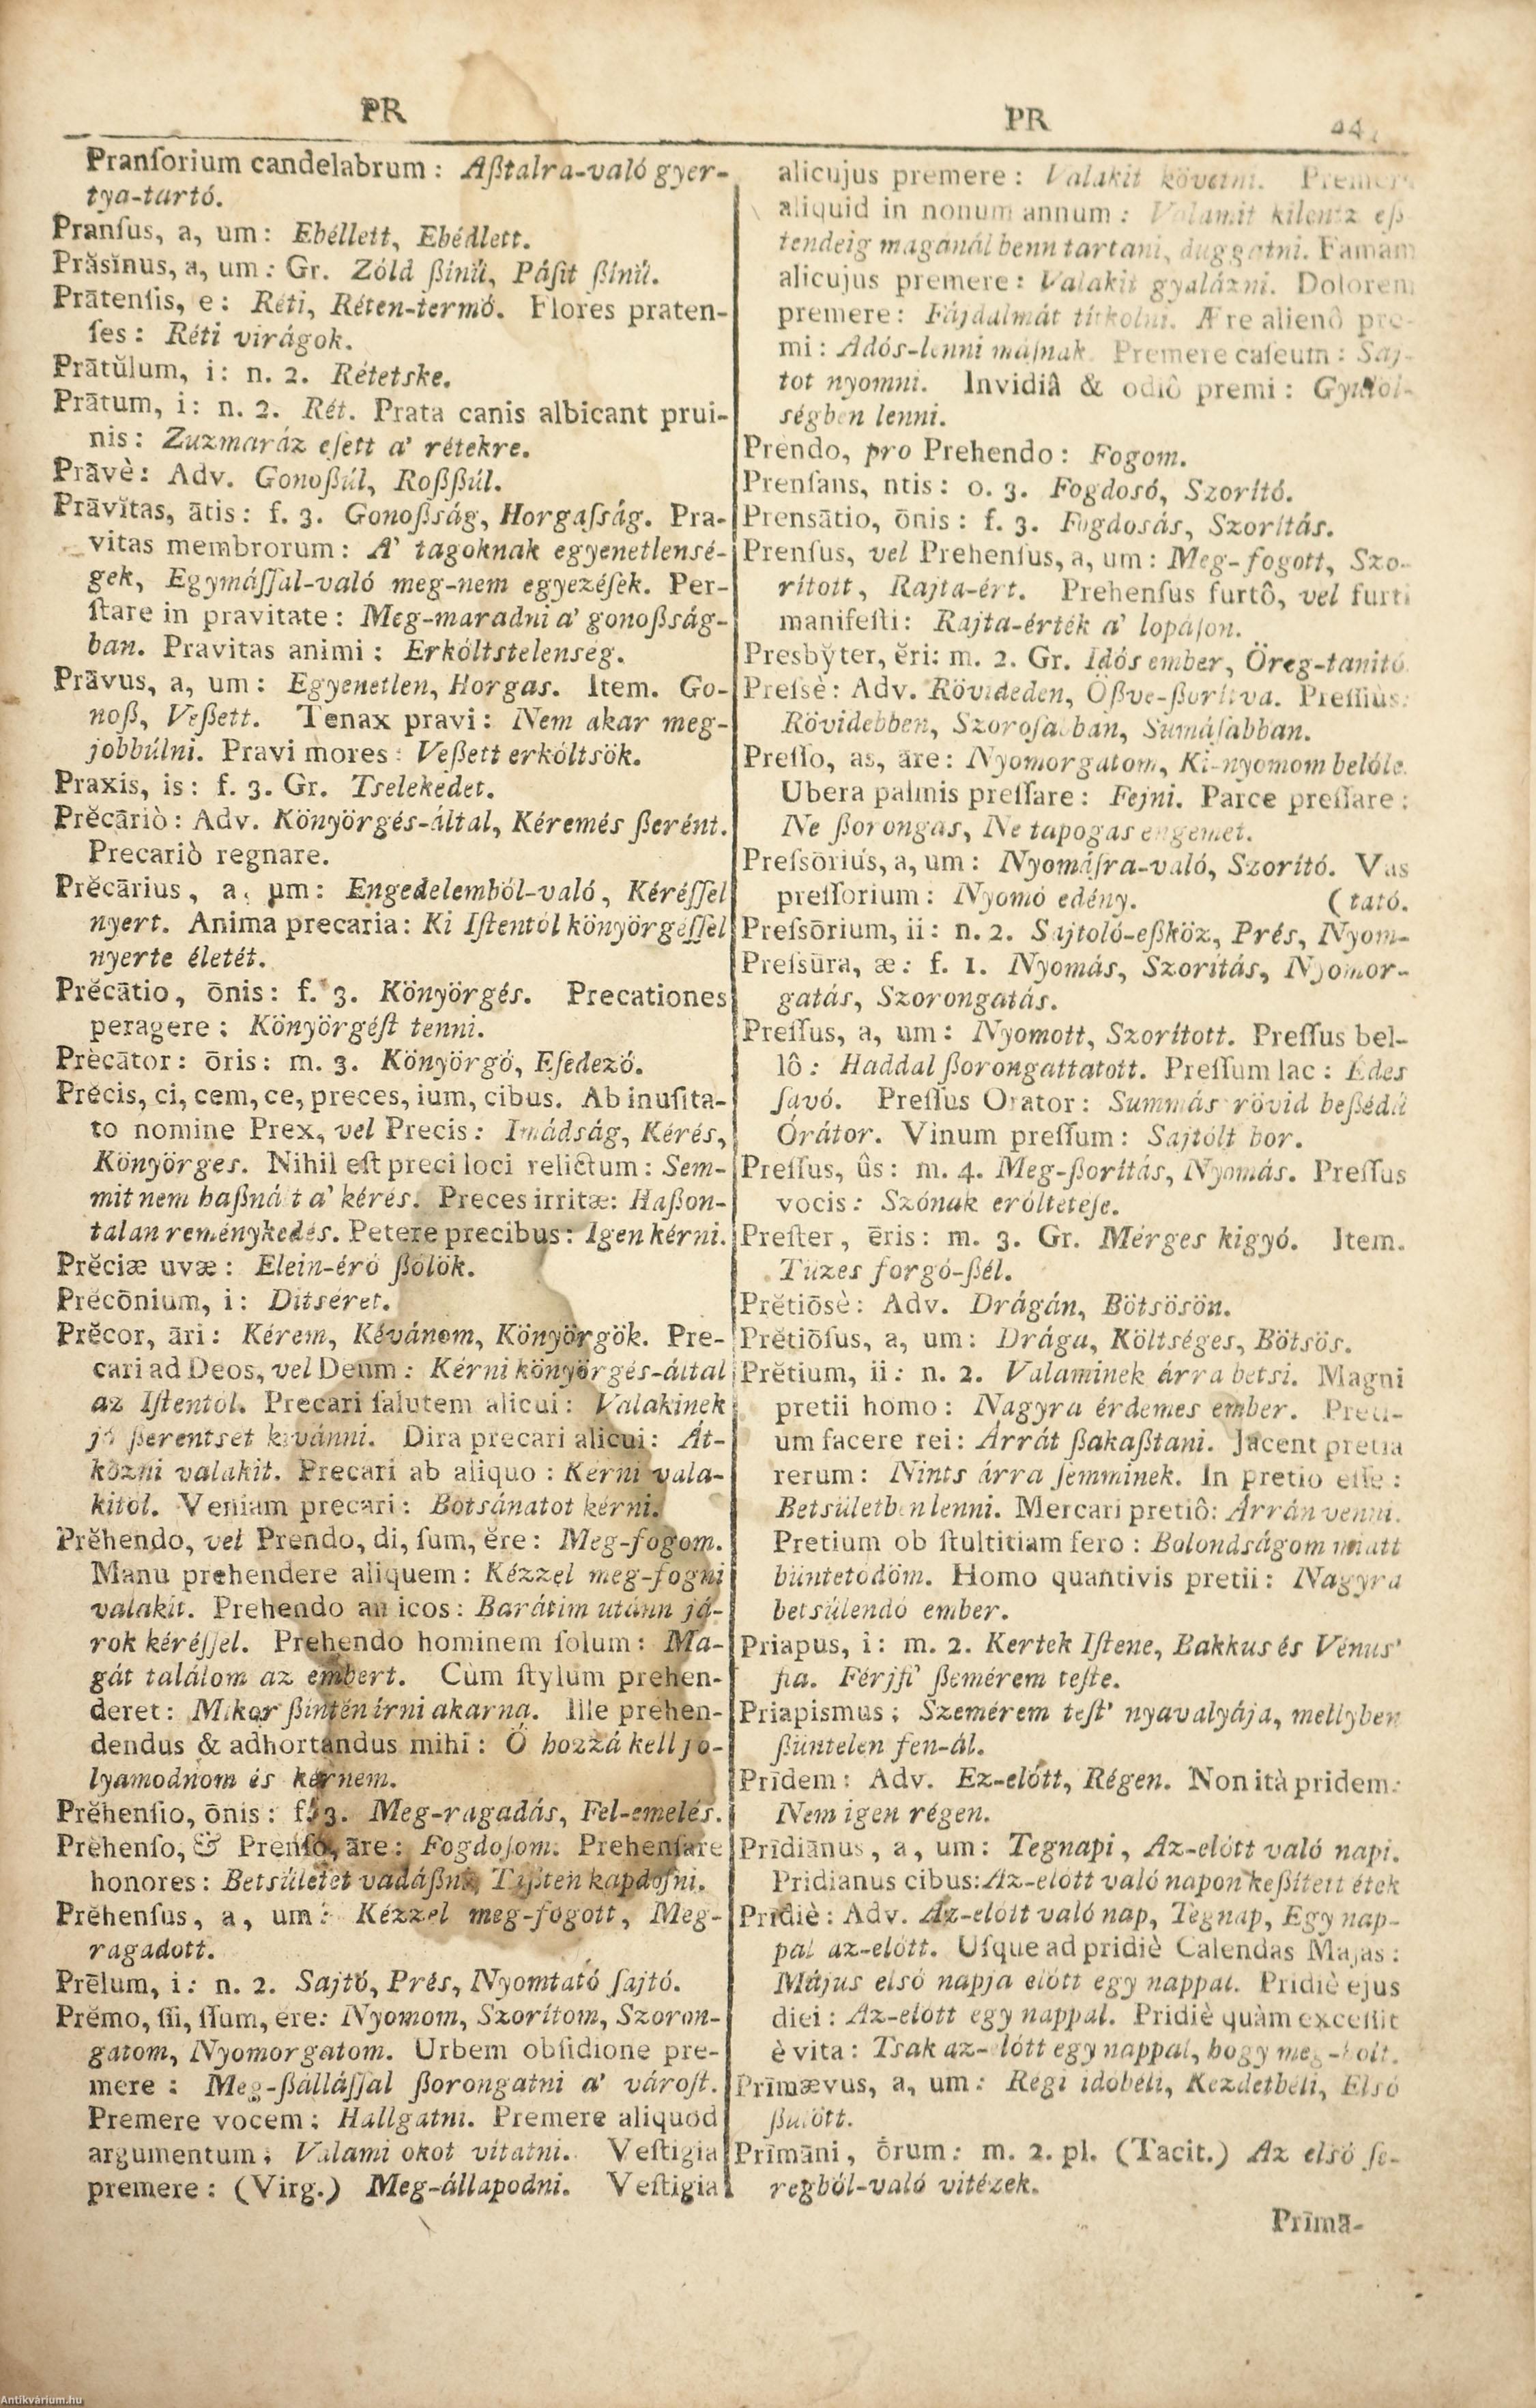 PR
Pranſorium candelabrum : Aßtalra-való gyer-
tya-tartó.
Pranſus, a, um: Ebéllett, Ebédlett.
Prăsĭnus, a, um: Gr. Zóld ßínű, Páſit ßínű.
Prātenſis, e: Réti, Réten-termő. Flores praten-
ſes: Réti virágok.
Prātŭlum, i: n. 2. Rétetske.
Prātum, i: n. 2. Rét. Prata canis albicant prui-
nis: Zuzmaráz eſett a' rétekre.
Prāvè: Adv. Gonoßúl, Roßßúl.
Prāvĭtas, ātis: f. 3. Gonoßság, Horgaſság. Pra-
vitas membrorum: A' tagoknak egyenetlensé-
gek, Egymáſſal-való meg-nem egyezéſek. Per-
ſtare in pravitate: Meg-maradni a' gonoßság-
ban. Pravitas animi: Erkóltstelenség.
Prāvus, a, um: Egyenetlen, Horgas. Item. Go-
noß, Veßett. Tenax pravi: Nem akar meg-
jobbúlni. Pravi mores: Veßett erkóltsök.
Praxis, is: f. 3. Gr. Tselekedet.
Prĕcāriò: Adv. Könyörgés-által, Kéremés ßerént.
Precariò regnare.
Prĕcārius, a, um: Engedelemből-való, Kéréſſel
nyert. Anima precaria: Ki Iſtentől könyörgéſſel
nyerte életét.
Prĕcātio, ōnis: f. 3. Könyörgés. Precationes
peragere: Könyörgéſt tenni.
Prĕcātor: ōris: m. 3. Könyörgő, Eſedező.
Prĕcis, ci, cem, ce, preces, ium, cibus. Ab inuſita-
to nomine Prex, vel Precis: Imádság, Kérés,
Könyörges. Nihil eſt preci loci relictum: Sem-
mit nem haßnált a' kérés. Preces irritæ: Haßon-
talan reménykedés. Petere precibus: Igen kérni.
Prĕciæ uvæ: Elein-érő ßőlők.
Prĕcōnium, i: Ditséret.
Prĕcor, āri: Kérem, Kévánom, Könyörgök. Pre-
cari ad Deos, vel Deum: Kérni könyörgés-által
az Iſtentől. Precari ſalutem alicui: Valakinek
jó ßerentset kivánni. Dira precari alicui: Át-
kozni valakit. Precari ab aliquo: Kérni vala-
kitől. Veniam precari: Botsánatot kérni.
Prĕhendo, vel Prendo, di, ſum, ĕre: Meg-fogom.
Manu prehendere aliquem: Kézzel meg-fogni
valakit. Prehendo amicos: Barátim utánn já-
rok kéréſſel. Prehendo hominem ſolum: Ma-
gát találom az embert. Cùm ſtylum prehen-
deret: Mikor ßintén írni akarna. Ille prehen-
dendus & adhortandus mihi: Ő hozzá kell fo-
lyamodnom és kérnem.
Prĕhenſio, ōnis: f. 3. Meg-ragadás, Fel-emelés.
Prĕhenſo, & Prenſo, āre: Fogdoſom. Prehenſare
honores: Betsületet vadáßni, Tißten kapdoſni.
Prĕhenſus, a, um: Kézzel meg-fogott, Meg-
ragadott.
Prēlum, i: n. 2. Sajtó, Prés, Nyomtató ſajtó.
Prĕmo, ſſi, ſſum, ĕre: Nyomom, Szorítom, Szoron-
gatom, Nyomorgatom. Urbem obſidione pre-
mere: Meg-ßálláſſal ßorongatni a' várost.
Premere vocem: Hallgatni. Premere aliquod
argumentum: Valami okot vitatni. Veſtigia
premere: (Virg.) Meg-állapodni. Veſtigia
PR
alicujus premere: Valakit követni. Premere
aliquid in nonum annum: Valamit kilentz eß-
tendeig magánál benn tartani, duggatni. Famam
alicujus premere: Valakit gyalázni. Dolorem
premere: Fájdalmát titkolni. Ære alienô pre-
mi: Adós-lenni máſnak. Premere caſeum: Saj-
tot nyomni. Invidiâ & odiô premi: Gyűlöl-
ségben lenni.
Prendo, pro Prehendo: Fogom.
Prenſans, ntis: o. 3. Fogdosó, Szorító.
Prensātio, ōnis: f. 3. Fogdosás, Szorítás.
Prenſus, vel Prehenſus, a, um: Meg-fogott, Szo-
rított, Rajta-ért. Prehenſus furtô, vel furti
manifeſti: Rajta-érték a' lopáſon.
Presby̆ter, ĕri: m. 2. Gr. Idős ember, Öreg-tanító.
Preſsè: Adv. Rövideden, Ößve-ßorítva. Preſſiùs:
Rövidebben, Szoroſabban, Sumáſabban.
Preſſo, as, āre: Nyomorgatom, Ki-nyomom belőle.
Ubera palmis preſſare: Fejni. Parce preſſare:
Ne ßorongas, Ne tapogas engemet.
Preſsōrius, a, um: Nyomáſra-való, Szorító. Vas
preſſorium: Nyomó edény. (tató.
Preſsōrium, ii: n. 2. Sajtoló-eßköz, Prés, Nyom-
Preſsūra, æ: f. 1. Nyomás, Szorítás, Nyomor-
gatás, Szorongatás.
Preſſus, a, um: Nyomott, Szorított. Preſſus bel-
lô: Haddal ßorongattatott. Preſſum lac: Édes
ſavó. Preſſus Orator: Summás rövid beßédű
Órátor. Vinum preſſum: Sajtólt bor.
Preſſus, ûs: m. 4. Meg-ßorítás, Nyomás. Preſſus
vocis: Szónak erőltetéſe.
Preſter, ēris: m. 3. Gr. Mérges kigyó. Item.
Tüzes forgó-ßél.
Prĕtiōsè: Adv. Drágán, Bötsösön.
Prĕtiōſus, a, um: Drága, Költséges, Bötsös.
Prĕtium, ii: n. 2. Valaminek árra betsi. Magni
pretii homo: Nagyra érdemes ember. Preti-
um facere rei: Árrát ßakaßtani. Jacent pretia
rerum: Nints árra ſemminek. In pretio eſſe:
Betsületben lenni. Mercari pretiô: Árrán venni.
Pretium ob ſtultitiam fero: Bolondságom miatt
büntetődöm. Homo quantivis pretii: Nagyra
betsülendő ember.
Priapus, i: m. 2. Kertek Iſtene, Bakkus és Vénus'
fia. Férjfi' ßemérem teſte.
Priapismus: Szemérem teſt' nyavalyája, mellyben
ßüntelen fen-ál.
Prīdem: Adv. Ez-előtt, Régen. Non ità pridem:
Nem igen régen.
Prīdiānus, a, um: Tegnapi, Az-előtt való napi.
Pridianus cibus: Az-előtt való napon keßített étek
Pridiè: Adv. Az-előtt való nap, Tegnap, Egy nap-
pal az-előtt. Uſque ad pridiè Calendas Majas:
Május első napja előtt egy nappal. Pridiè ejus
diei: Az-előtt egy nappal. Pridiè quàm exceſſit
è vita: Tsak az-előtt egy nappal, hogy meg-holt.
Prīmævus, a, um: Régi időbéli, Kezdetbéli, Első
ßülött.
Prīmāni, ōrum: m. 2. pl. (Tacit.) Az első ſe-
regből-való vitézek.
Prīmā-
Antikvárium.hu